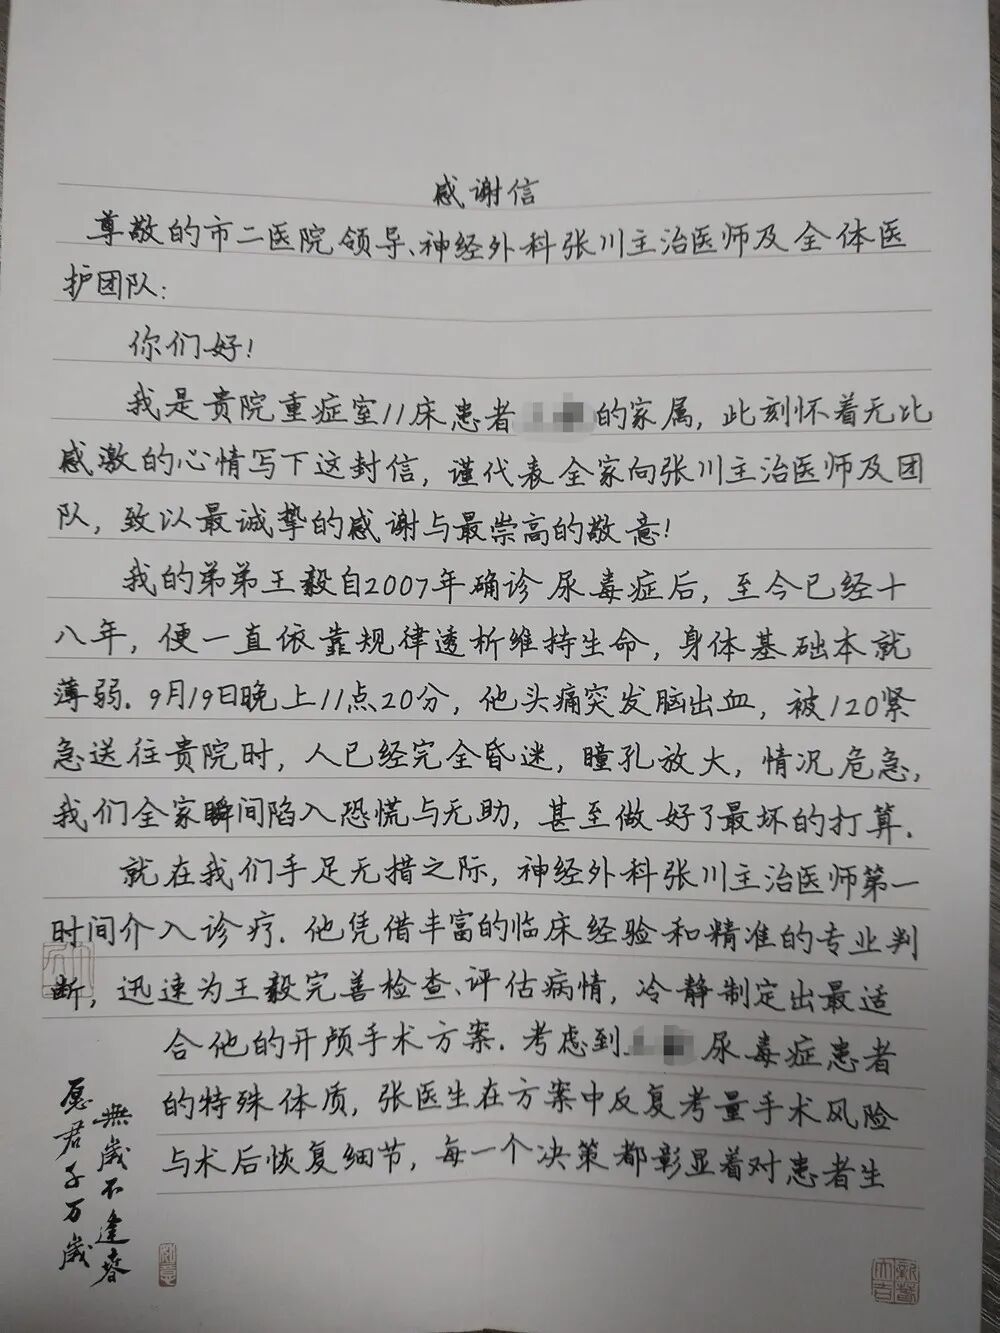 感谢信
尊敬的市二医院领导、神经外科张川主治医师及全体医
护团队:
你们好!
我是贵院重症室11床患者的家属,此刻怀着无比
感激的心情写下这封信,谨代表全家向张川主治医师及团
队,致以最诚挚的感谢与最崇高的敬意!
我的弟弟王毅自2007年确诊尿毒症后,至今已经十
八年,便一直依靠规律透析维持生命,身体基础本就
薄弱.9月19日晚上11点20分,他头痛突发脑出血,被120紧
急送往贵院时,人已经完全昏迷,瞳孔放大,情况危急,
我们全家瞬间陷入恐慌与无助,甚至做好了最坏的打算.
就在我们手足无措之际,神经外科张川主治医师第一
时间介入诊疗.他凭借丰富的临床经验和精准的专业判
断,迅速为王毅完善检查、评估病情,冷静制定出最适
合他的开颅手术方案.考虑到尿毒症患者
的特殊体质,张医生在方案中反复考量手术风险
与术后恢复细节,每一个决策都彰显着对患者生
愿君子万歲
無歲不逢春